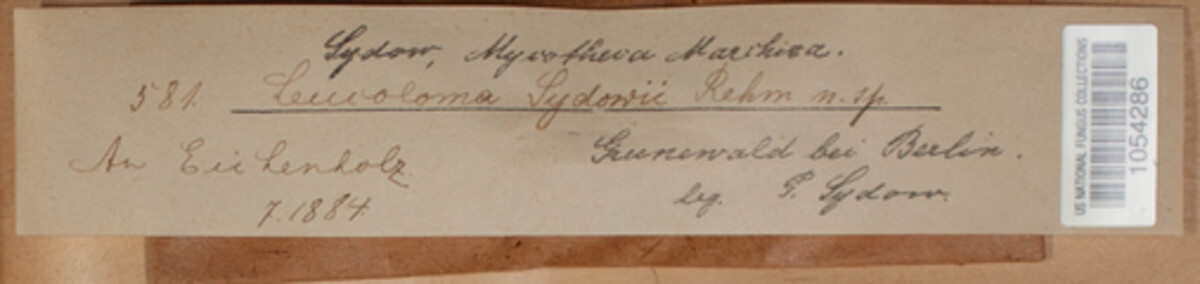 Sydow, Mycotheca Marchica.
581. Leucoloma Sydowii Rehm n. sp.
An Eichenholz
Grunewald bei Berlin.
7.1884.
leg. P. Sydow.
US NATIONAL FUNGUS COLLECTIONS
1054286